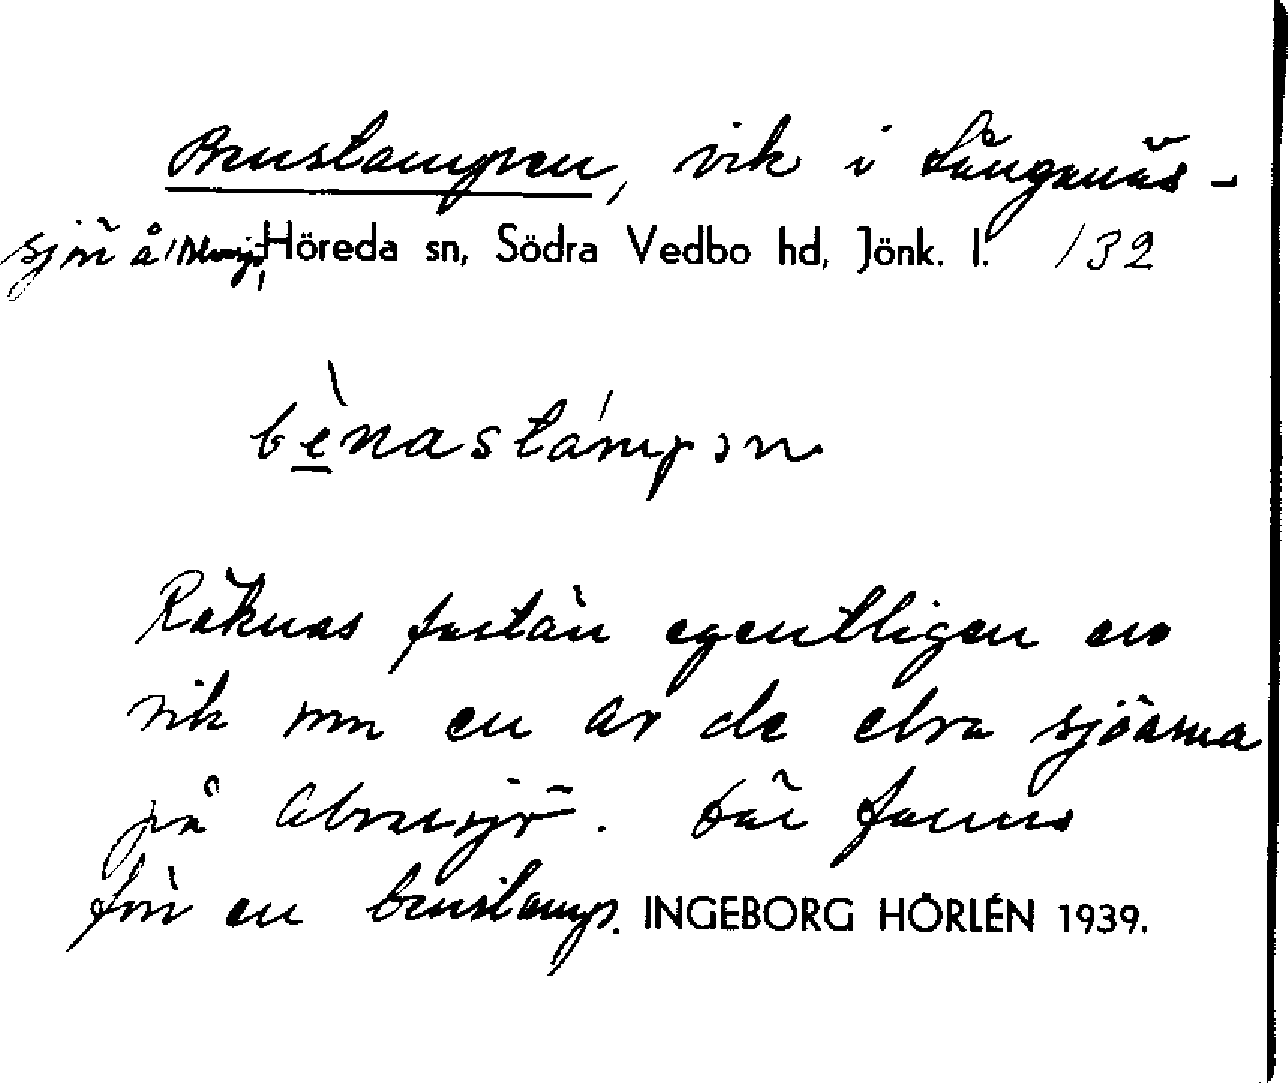 Benstampen, vik i Långanäs-
sjön å Höreda sn, Södra Vedbo hd, Jönk. l. 132
bènastámpən
Räknas fastän egentligen en
vik som en av de elva sjöarna
på Alvasjö. Där fanns
förr en benstamp. INGEBORG HÖRLÉN 1939.